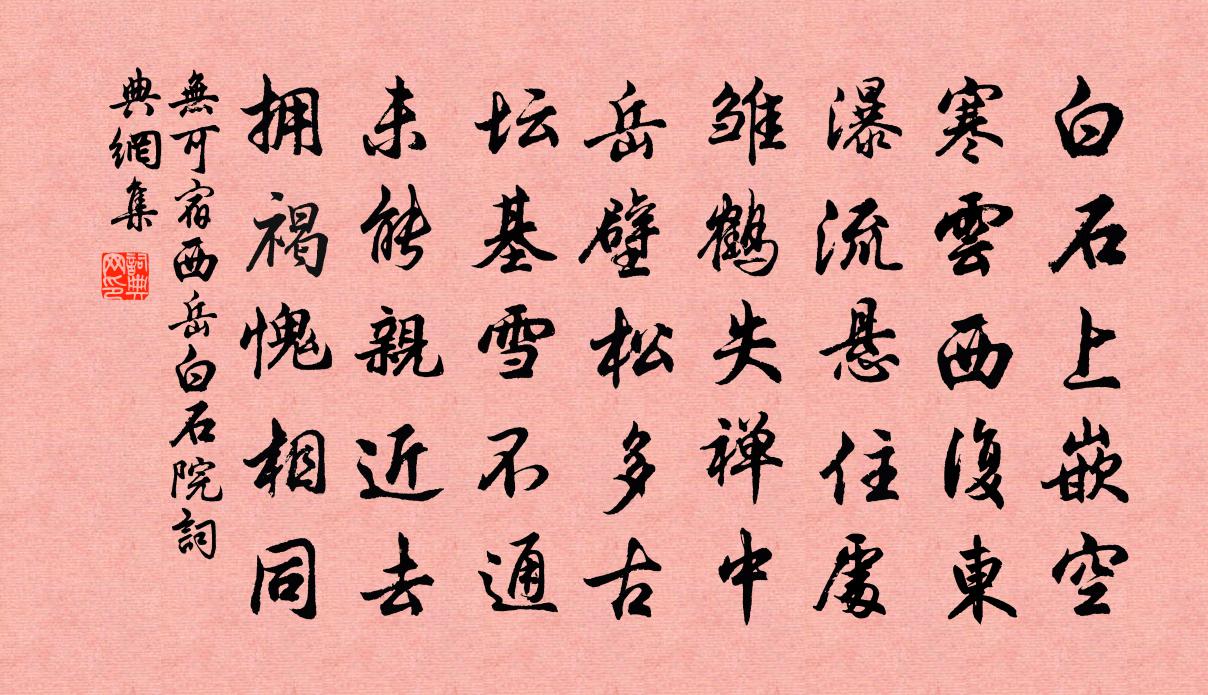 白石上嵌空
寒雲西復東
瀑流悬住處
雏鶴失禅中
岳壁松多古
坛基雪不通
未能親近去
拥褐愧相同
無可宿西岳白石院詞
典網集
詞典网印